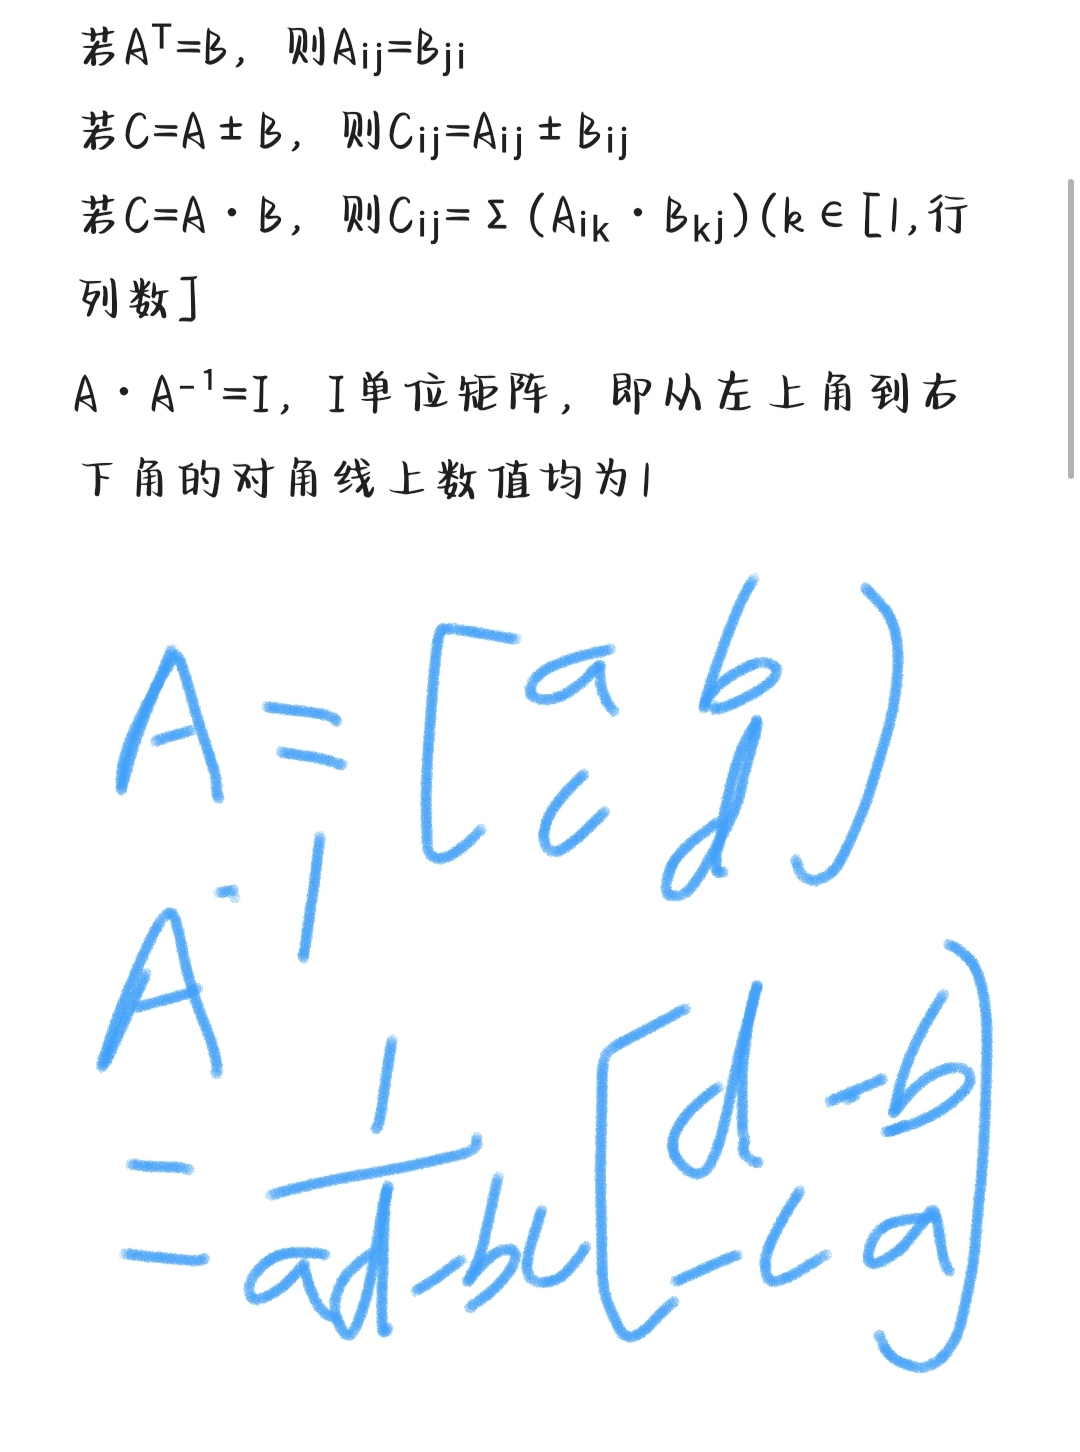 若Aᵀ=B，则Aᵢⱼ=Bⱼᵢ
若C=A±B，则Cᵢⱼ=Aᵢⱼ±Bᵢⱼ
若C=A·B，则Cᵢⱼ=Σ(Aᵢₖ·Bₖⱼ)(k∈[1,行
列数]
A·A⁻¹=I，I单位矩阵，即从左上角到右
下角的对角线上数值均为1
A=[a b
c d)
A⁻¹
=1/(ad-bc)[d -b
-c a)